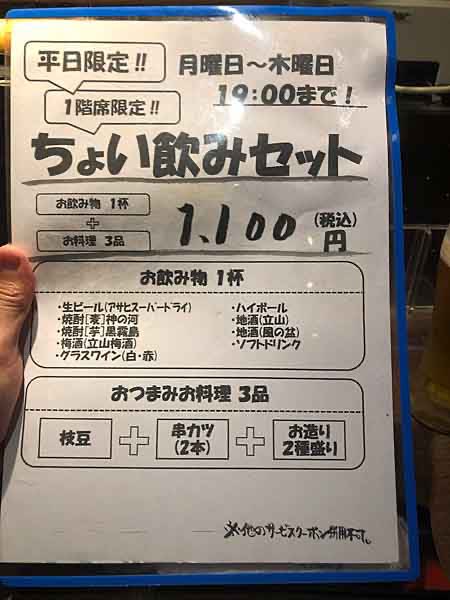 平日限定!!
月曜日〜木曜日
1階席限定!!
19:00まで!
ちょい飲みセット
お飲み物 1杯
+
お料理 3品
1,100円(税込)
お飲み物 1杯
・生ビール(アサヒスーパードライ)
・焼酎[麦]神の河
・焼酎[芋]黒霧島
・梅酒(立山梅酒)
・グラスワイン(白・赤)
・ハイボール
・地酒(立山)
・地酒(風の盆)
・ソフトドリンク
おつまみお料理 3品
枝豆 + 串カツ(2本) + お造り2種盛り
※他のサービスクーポン併用不可。